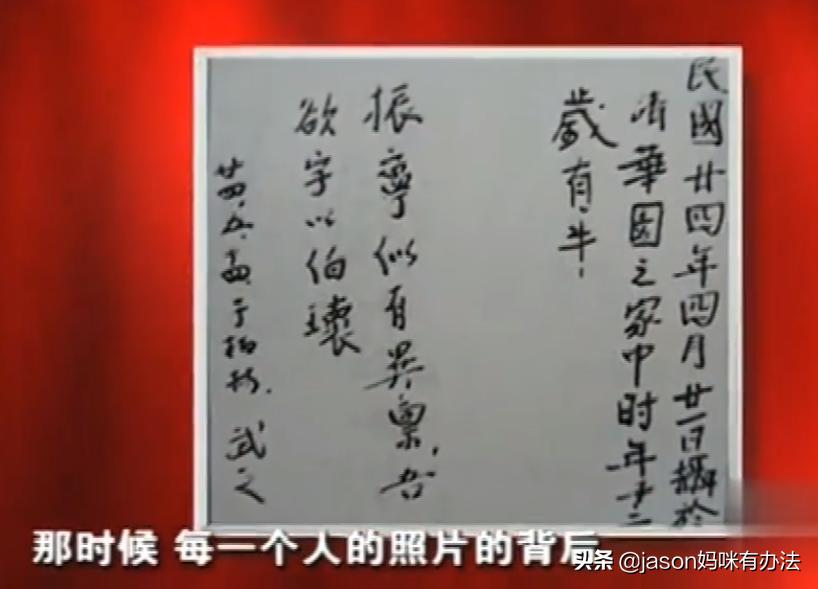 民國廿四年四月廿一日攝於
清華园之家中时年十二
歲有半
振寧似有異禀,吾
欲字以伯瓌
廿四.五. 于柏林. 武之
那时候 每一个人的照片的背后
头条 @jason妈咪有办法